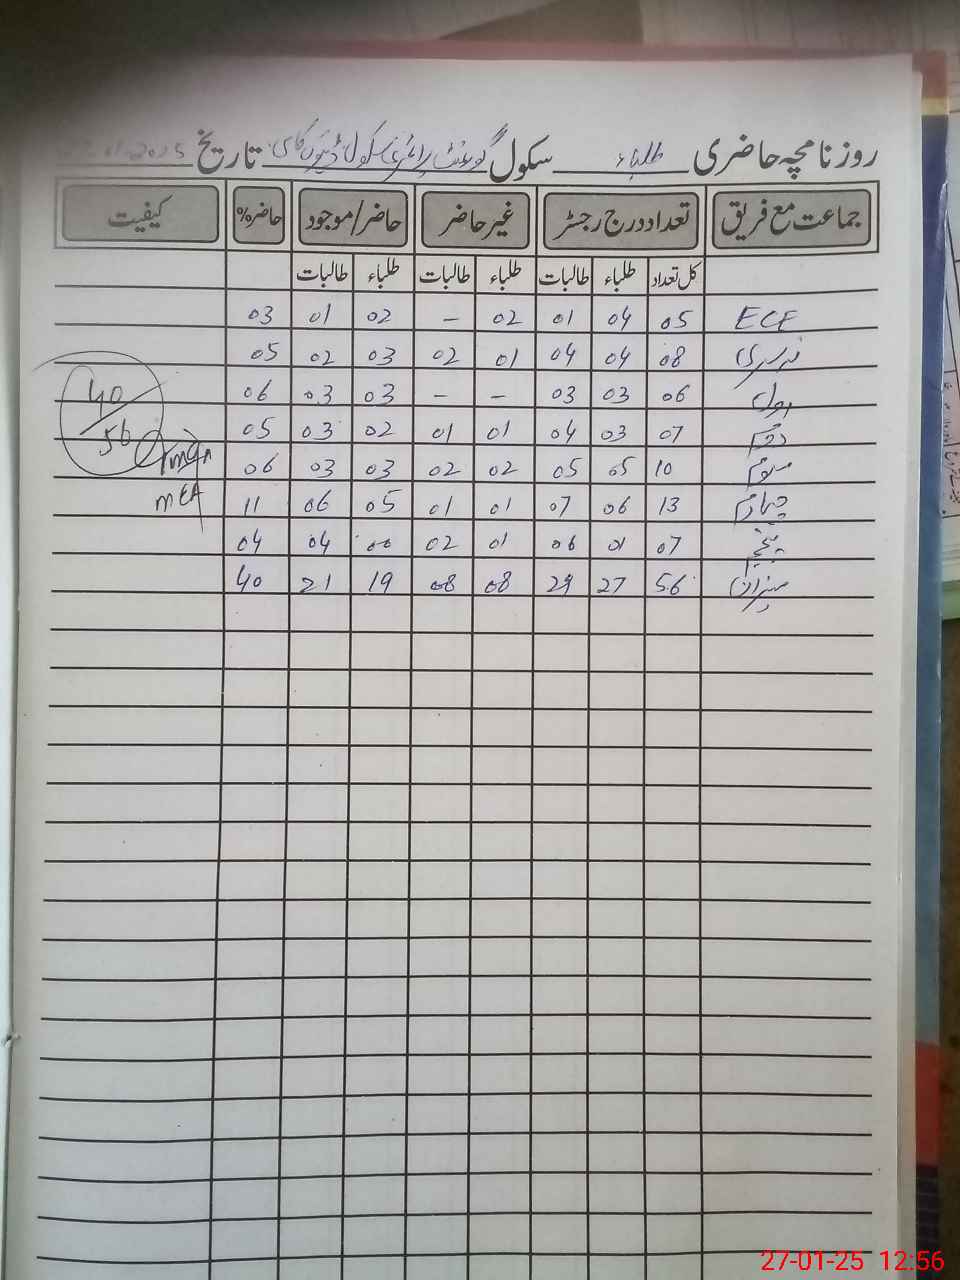 روزنامچہ حاضری طلباء سکول گورنمنٹ پرائمری سکول تاریخ
جماعت مع فریق تعداد درج رجسٹر غیر حاضر حاضر/موجود حاضر% کیفیت
کل تعداد طلباء طالبات طلباء طالبات طلباء طالبات
ECE 05 04 01 02 - 02 01 03
نرسری 08 04 04 01 02 03 02 05
اول 06 03 03 - - 03 03 06
دوم 07 03 04 01 01 02 03 05
سوم 10 05 05 02 02 03 03 06
چہارم 13 06 07 01 01 05 06 11
پنجم 07 01 06 01 02 00 04 04
میزان 56 27 29 08 08 19 21 40
40/56
MEA
27-01-25 12:56